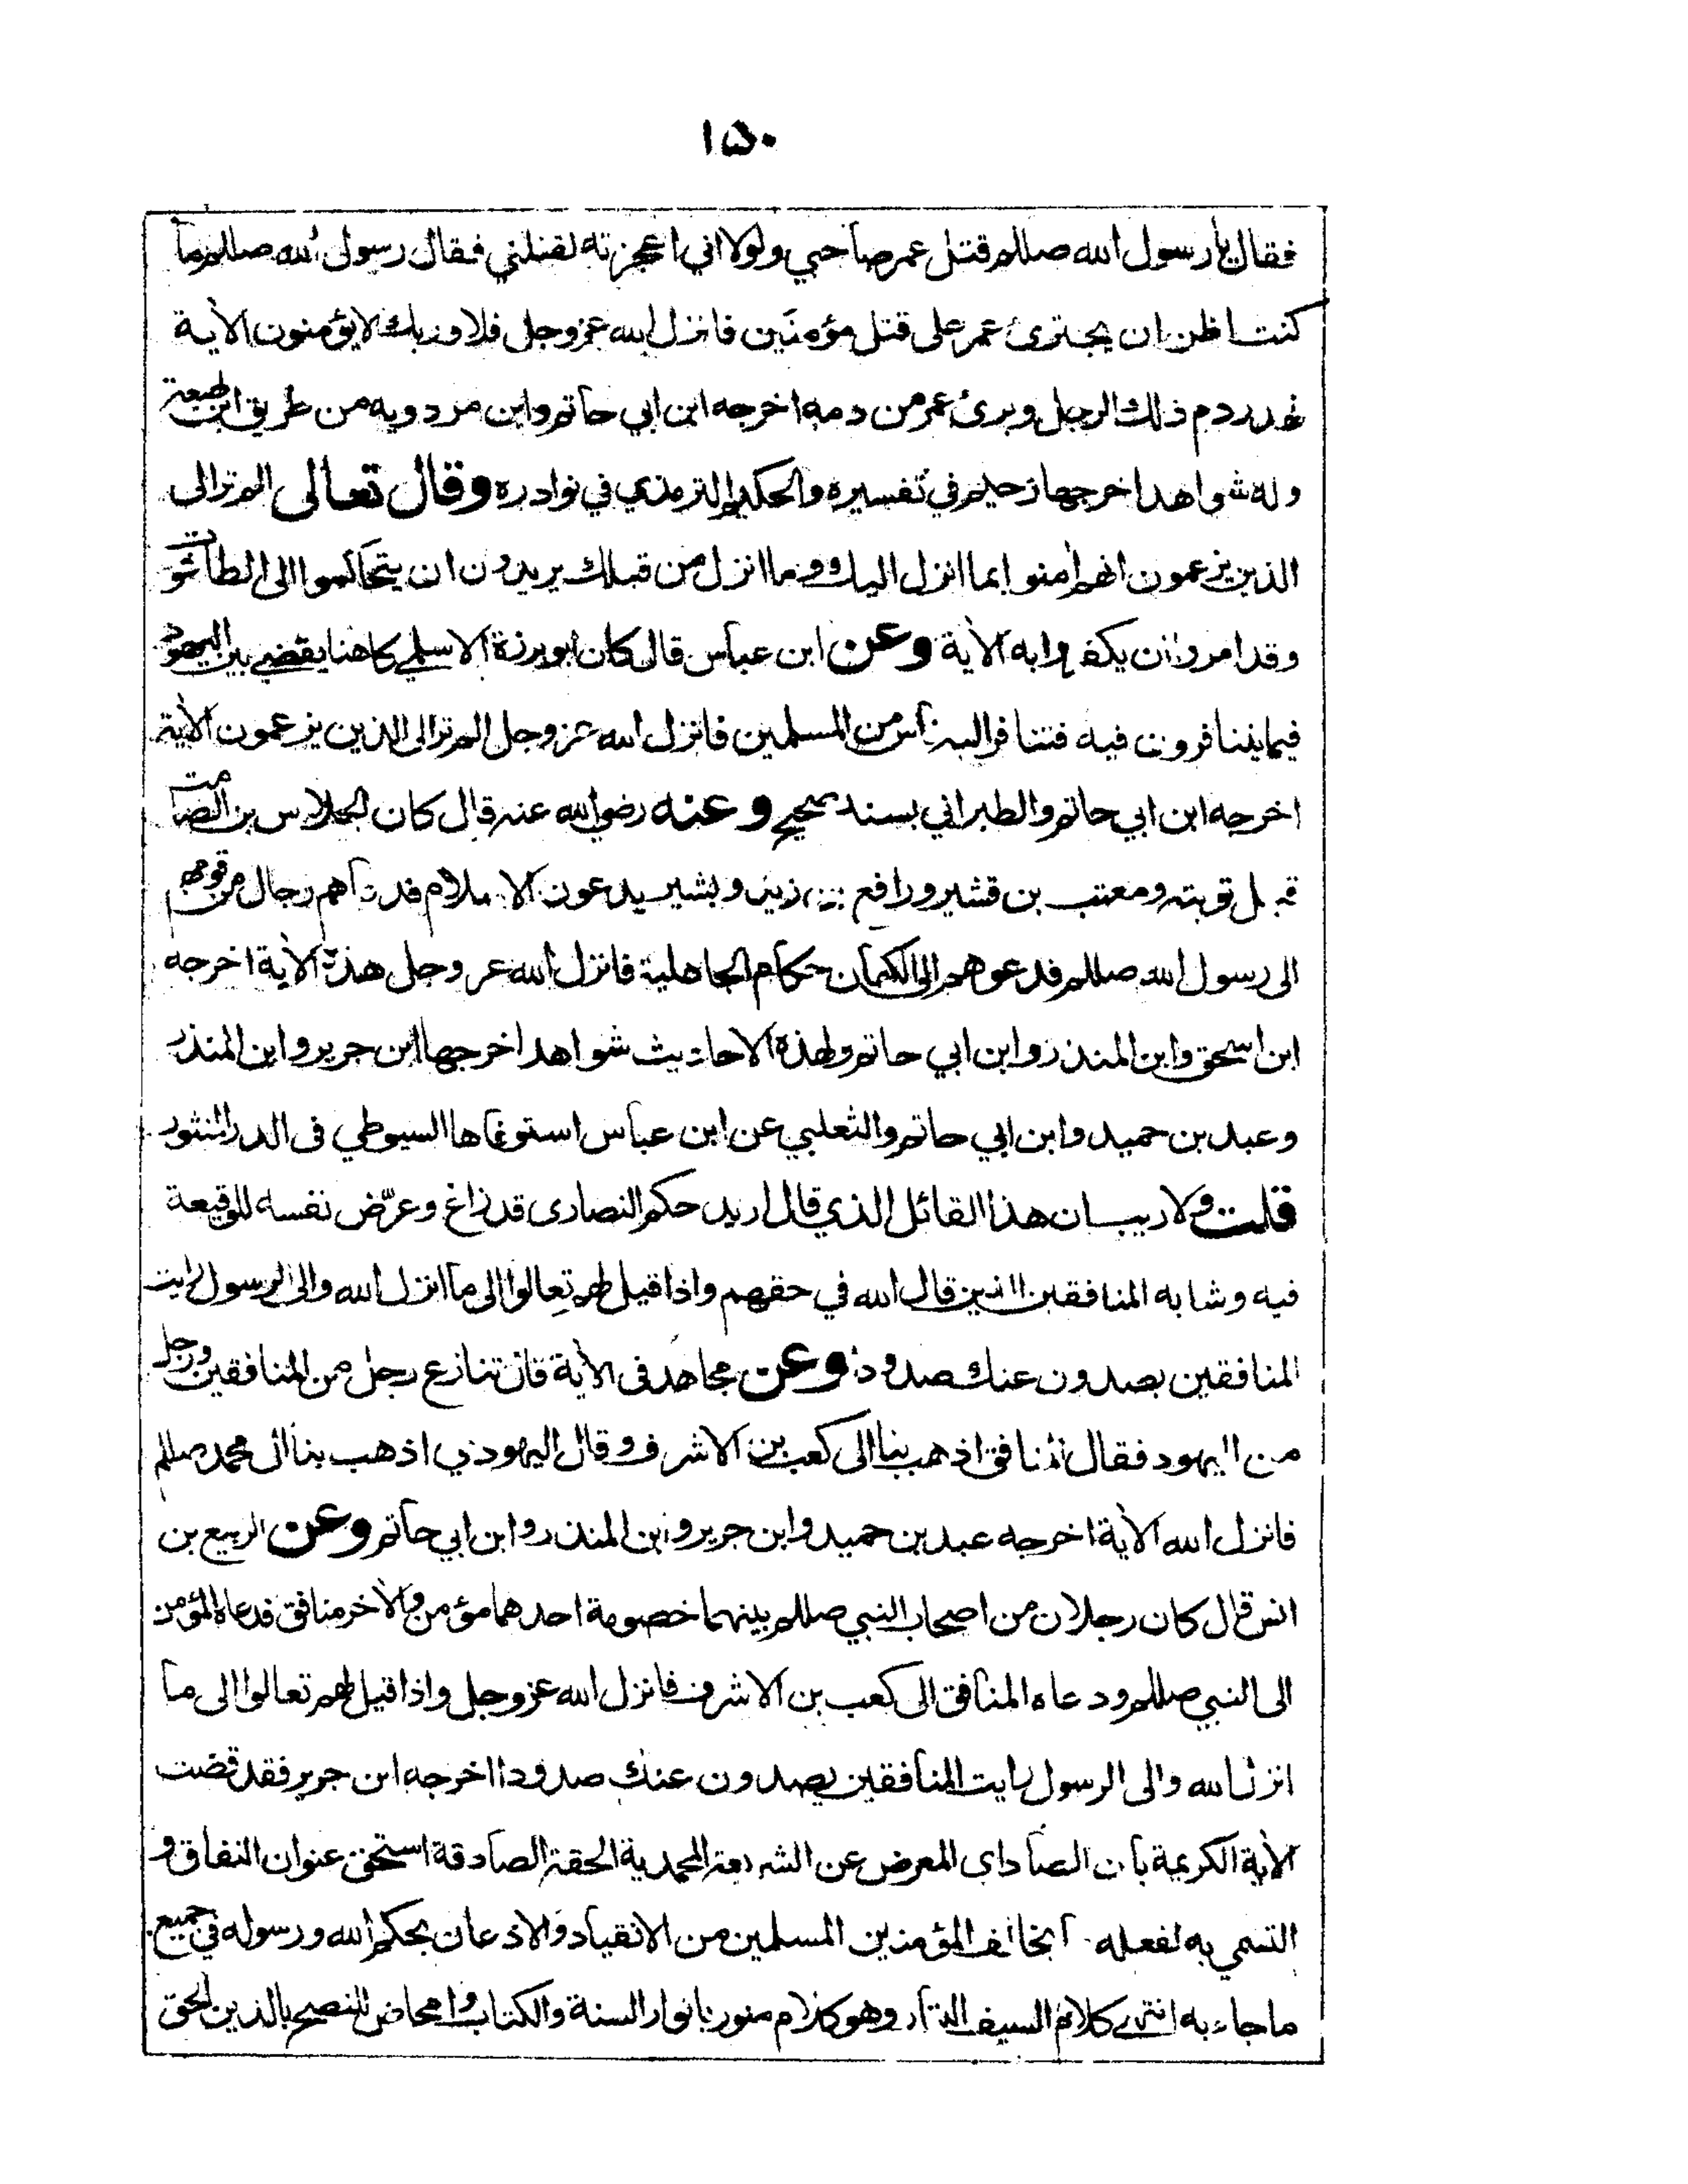 ١٥٠
فقال يا رسول الله صللم قتل عمر صاحبي ولولا اني اعجزته لقتلني فقال رسول الله صللم ما
كنت اظن ان يجترئ عمر على قتل مؤمنين فانزل الله عز وجل فلا وربك لا يؤمنون الآية
فهدر دم ذلك الرجل وبرئ عمر من دمه اخرجه ابن ابي حاتم وابن مردويه من طريق ابن لهيعة
وله شواهد اخرجها دحيم في تفسيره والحكيم الترمذي في نوادره وقال تعالى الم تر الى
الذين يزعمون انهم امنوا بما انزل اليك وما انزل من قبلك يريدون ان يتحاكموا الى الطاغوت
وقد امروا ان يكفروا به الآية وعن ابن عباس قال كان ابو برزة الاسلمي كاهنا يقضي بين اليهود
فيما يتنافرون فيه فتنافر اليه ناس من المسلمين فانزل الله عز وجل الم تر الى الذين يزعمون الآية
اخرجه ابن ابي حاتم والطبراني بسند صحيح وعنه رضي الله عنه قال كان الجلاس بن الصامت
قبل توبته ومعتب بن قشير ورافع بن زيد وبشير يدعون الاسلام فدعاهم رجال من قومهم
الى رسول الله صللم فدعوهم الى الكهان حكام الجاهلية فانزل الله عز وجل هذه الآية اخرجه
ابن اسحق وابن المنذر وابن ابي حاتم ولهذه الاحاديث شواهد اخرجها ابن جرير وابن المنذر
وعبد بن حميد وابن ابي حاتم والثعلبي عن ابن عباس استوفاها السيوطي في الدر المنثور
قلت ولا ريب ان هذا القائل الذي قال اريد حكم النصارى قد زاغ وعرّض نفسه للوقيعة
فيه وشابه المنافقين الذين قال الله في حقهم واذا قيل لهم تعالوا الى ما انزل الله والى الرسول رايت
المنافقين يصدون عنك صدودا وعن مجاهد في الآية قال تنازع رجل من المنافقين ورجل
من اليهود فقال المنافق اذهب بنا الى كعب بن الاشرف وقال اليهودي اذهب بنا الى محمد صللم
فانزل الله الآية اخرجه عبد بن حميد وابن جرير وابن المنذر وابن ابي حاتم وعن الربيع بن
انس قال كان رجلان من اصحاب النبي صللم بينهما خصومة احدهما مؤمن والآخر منافق فدعاه المؤمن
الى النبي صللم ودعاه المنافق الى كعب بن الاشرف فانزل الله عز وجل واذا قيل لهم تعالوا الى ما
انزل الله والى الرسول رايت المنافقين يصدون عنك صدودا اخرجه ابن جرير فقد قضت
الآية الكريمة بان الصاد اي المعرض عن الشريعة المحمدية الحقة الصادقة استحق عنوان النفاق و
التسمي به لفعله ما يخالف المؤمنين المسلمين من الانقياد والاذعان بحكم الله ورسوله في جميع
ما جاء به انتهى كلام السيف البتار وهو كلام منور بانوار السنة والكتاب وامحاض للنصح بالدين الحق